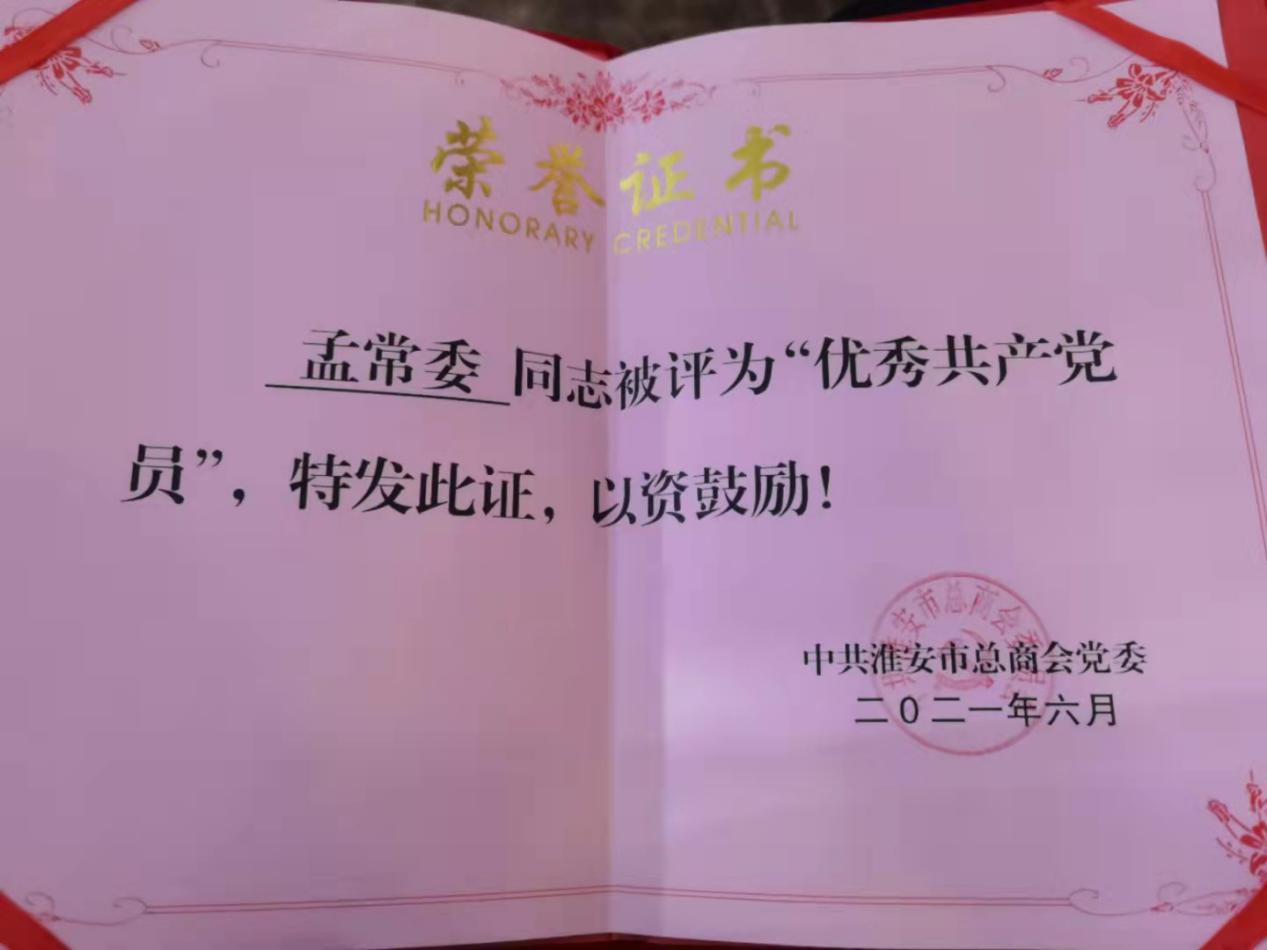 荣誉证书
HONORARY CREDENTIAL
孟常委 同志被评为“优秀共产党
员”，特发此证，以资鼓励！
中共淮安市总商会党委
二0二一年六月
淮安市总商会